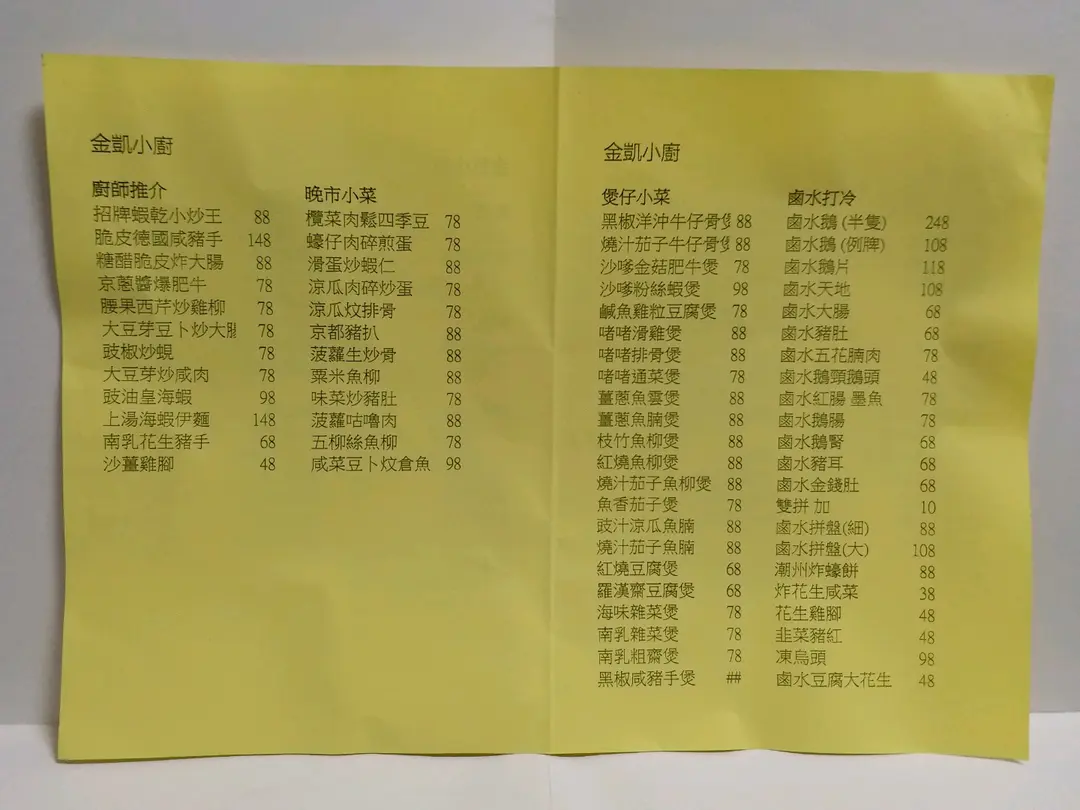 金凱小廚
廚師推介
招牌蝦乾小炒王 88
脆皮德國咸豬手 148
糖醋脆皮炸大腸 88
京蔥醬爆肥牛 78
腰果西芹炒雞柳 78
大豆芽豆卜炒大腸 78
豉椒炒蜆 78
大豆芽炒咸肉 78
豉油皇海蝦 98
上湯海蝦伊麵 148
南乳花生豬手 68
沙薑雞腳 48
晚市小菜
欖菜肉鬆四季豆 78
蠔仔肉碎煎蛋 78
滑蛋炒蝦仁 88
涼瓜肉碎炒蛋 78
涼瓜炆排骨 78
京都豬扒 88
菠蘿生炒骨 88
粟米魚柳 88
味菜炒豬肚 78
菠蘿咕嚕肉 88
五柳絲魚柳 78
咸菜豆卜炆倉魚 98
金凱小廚
煲仔小菜
黑椒洋沖牛仔骨煲 88
燒汁茄子牛仔骨煲 88
沙嗲金菇肥牛煲 78
沙嗲粉絲蝦煲 98
鹹魚雞粒豆腐煲 78
啫啫滑雞煲 88
啫啫排骨煲 88
啫啫通菜煲 78
薑蔥魚雲煲 88
薑蔥魚腩煲 88
枝竹魚柳煲 88
紅燒魚柳煲 88
燒汁茄子魚柳煲 88
魚香茄子煲 78
豉汁涼瓜魚腩 88
燒汁茄子魚腩 88
紅燒豆腐煲 68
羅漢齋豆腐煲 68
海味雜菜煲 78
南乳雜菜煲 78
南乳粗齋煲 78
黑椒咸豬手煲 ##
鹵水打冷
鹵水鵝 (半隻) 248
鹵水鵝 (例脾) 108
鹵水鵝片 118
鹵水天地 108
鹵水大腸 68
鹵水豬肚 68
鹵水五花腩肉 78
鹵水鵝頸鵝頭 48
鹵水紅腸 墨魚 78
鹵水鵝腸 78
鹵水鵝腎 68
鹵水豬耳 68
鹵水金錢肚 68
雙拼 加 10
鹵水拼盤(細) 88
鹵水拼盤(大) 108
潮州炸蠔餅 88
炸花生咸菜 38
花生雞腳 48
韭菜豬紅 48
凍烏頭 98
鹵水豆腐大花生 48